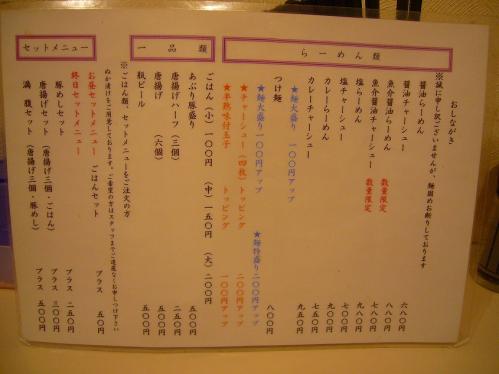 おしながき
らーめん類
※誠に申し訳ございませんが、麺固めお断りしております
醤油らーめん 六八〇円
醤油チャーシュー 八八〇円
魚介醤油らーめん 数量限定 七八〇円
魚介醤油チャーシュー 数量限定 九八〇円
塩らーめん 七〇〇円
塩チャーシュー 九〇〇円
カレーらーめん 七五〇円
カレーチャーシュー 九五〇円
★麺大盛り 一〇〇円アップ
つけ麺 八〇〇円
★麺大盛り 一〇〇円アップ ★麺特盛り 二〇〇円アップ
★チャーシュー(四枚)トッピング 二〇〇円アップ
★半熟味付玉子 トッピング 一〇〇円アップ
一品類
ごはん(小)一〇〇円 (中)一五〇円 (大)二〇〇円
あぶり豚盛り 五〇〇円
唐揚げハーフ(三個) 二五〇円
唐揚げ (六個) 五〇〇円
瓶ビール 五〇〇円
セットメニュー
※ごはん類、セットメニューをご注文の方
ぬか漬けをご用意しております。ご希望の方はスタッフまでご遠慮なくお申しつけ下さい
お昼セットメニュー ごはんセット プラス 五〇円
終日セットメニュー
豚めしセット プラス 二五〇円
唐揚げセット(唐揚げ三個・ごはん) プラス 三〇〇円
満腹セット(唐揚げ三個・豚めし) プラス 五〇〇円